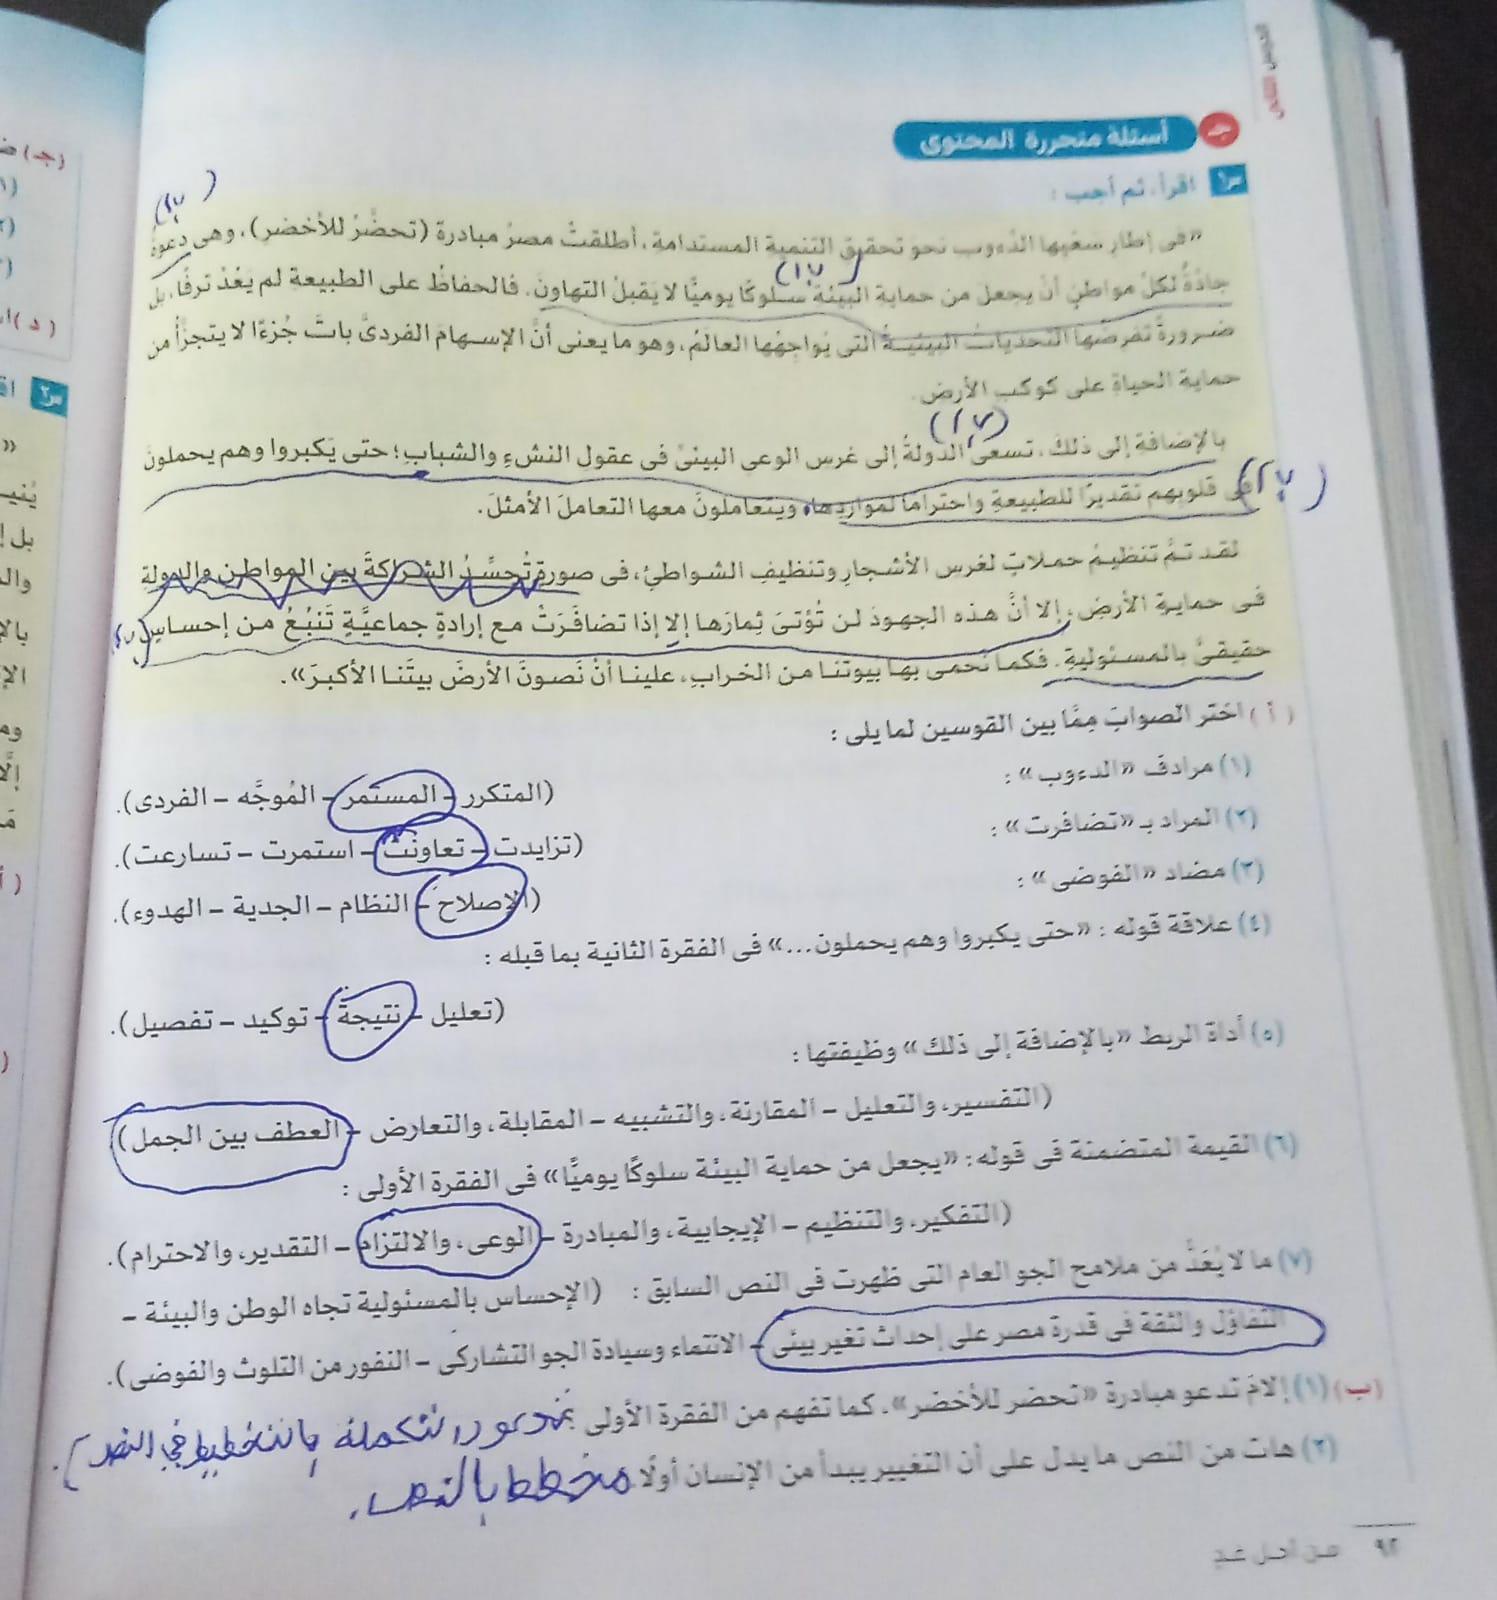 الدرس الثاني
جـ أسئلة متحررة المحتوى
س١ اقرأ، ثم أجب :
(ب٢)
«فى إطار سَعْيِها الدءوب نحوَ تحقيق التنمية المستدامة، أطلقتْ مصرُ مبادرة (تحضَّرْ للأخضر)، وهى دعوةٌ
(ب١)
جادَّةٌ لكلِّ مواطنٍ أنْ يجعلَ من حماية البيئة سلوكًا يوميًّا لا يَقبلُ التهاونَ. فالحفاظُ على الطبيعةِ لم يَعُدْ ترفًا، بل
ضرورةً تفرضُها التحدياتُ البيئيةُ التى يُواجِهُها العالَمُ، وهو ما يعنى أنَّ الإسهامَ الفردىَّ باتَ جُزءًا لا يتجزأُ من
حماية الحياةِ على كوكبِ الأرضِ.
(ب٢)
بالإضافةِ إلى ذلكَ، تسعى الدولةُ إلى غرسِ الوعى البيئىِّ فى عقول النشْءِ والشبابِ؛ حتى يَكبروا وهم يحملونَ
فى قلوبِهم تقديرًا للطبيعةِ واحترامًا لمواردِها، ويتعاملونَ معها التعاملَ الأمثلَ.
لقد تمَّ تنظيمُ حملاتٍ لغرسِ الأشجارِ وتنظيفِ الشواطئِ، فى صورةٍ تُجسِّدُ الشراكةَ بين المواطنِ والدولةِ
فى حمايةِ الأرضِ، إلا أنَّ هذه الجهودَ لن تُؤتىَ ثِمارَها إلا إذا تضافَرَتْ مع إرادةٍ جماعيَّةٍ تَنبُعُ من إحساسٍ
حقيقىٍّ بالمسئوليةِ. فكما نَحمى بها بيوتنا من الخرابِ، علينا أنْ نَصونَ الأرضَ بيتَنا الأكبرَ».
( أ ) اختر الصوابَ مِمَّا بين القوسين لما يلى :
(١) مرادف «الدءوب» :
(المتكرر – المستمر – المُوجَّه – الفردى).
(٢) المراد بـ «تضافرت» :
(تزايدت – تعاونت – استمرت – تسارعت).
(٣) مضاد «الفوضى» :
(الإصلاح – النظام – الجدية – الهدوء).
(٤) علاقة قوله : «حتى يكبروا وهم يحملون...» فى الفقرة الثانية بما قبله :
(تعليل – نتيجة – توكيد – تفصيل).
(٥) أداة الربط «بالإضافة إلى ذلك» وظيفتها :
(التفسير، والتعليل – المقارنة، والتشبيه – المقابلة، والتعارض – العطف بين الجمل)
(٦) القيمة المتضمنة فى قوله : «يجعل من حماية البيئة سلوكًا يوميًّا» فى الفقرة الأولى :
(التفكير، والتنظيم – الإيجابية، والمبادرة – الوعى، والالتزام – التقدير، والاحترام).
(٧) ما لا يُعَدُّ من ملامح الجو العام التى ظهرت فى النص السابق : (الإحساس بالمسئولية تجاه الوطن والبيئة –
التفاؤل والثقة فى قدرة مصر على إحداث تغير بيئى – الانتماء وسيادة الجو التشاركى – النفور من التلوث والفوضى).
(ب) (١) إلامَ تدعو مبادرة «تحضر للأخضر»، كما تفهم من الفقرة الأولى ؟ تدعو (التكملة بالتخطيط في النص).
(٢) هات من النص ما يدل على أن التغيير يبدأ من الإنسان أولًا. مخطط بالنص.
٩٢ من أجل غدٍ